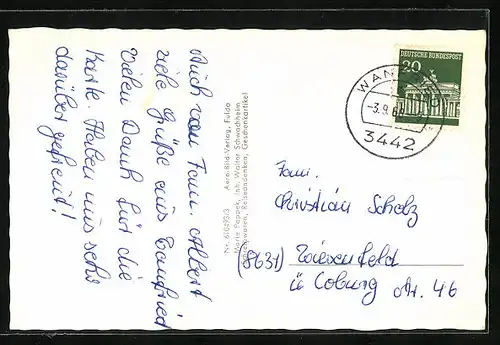 Auch von Fam. Albert
viele Grüße aus Wanfried
Vielen Dank für die
Karte. Haben uns sehr
darüber gefreut!
Nr. 6105920/3 Aero-Bild-Verlag, Fulda
Inh. Walter Schwachheim
Reiseandenken, Geschenkartikel
DEUTSCHE BUNDESPOST
20
WAN
-3.9.6
3442
Fam.
Christian Scholz
(8631) Wiesenfeld
ü Coburg Nr. 46